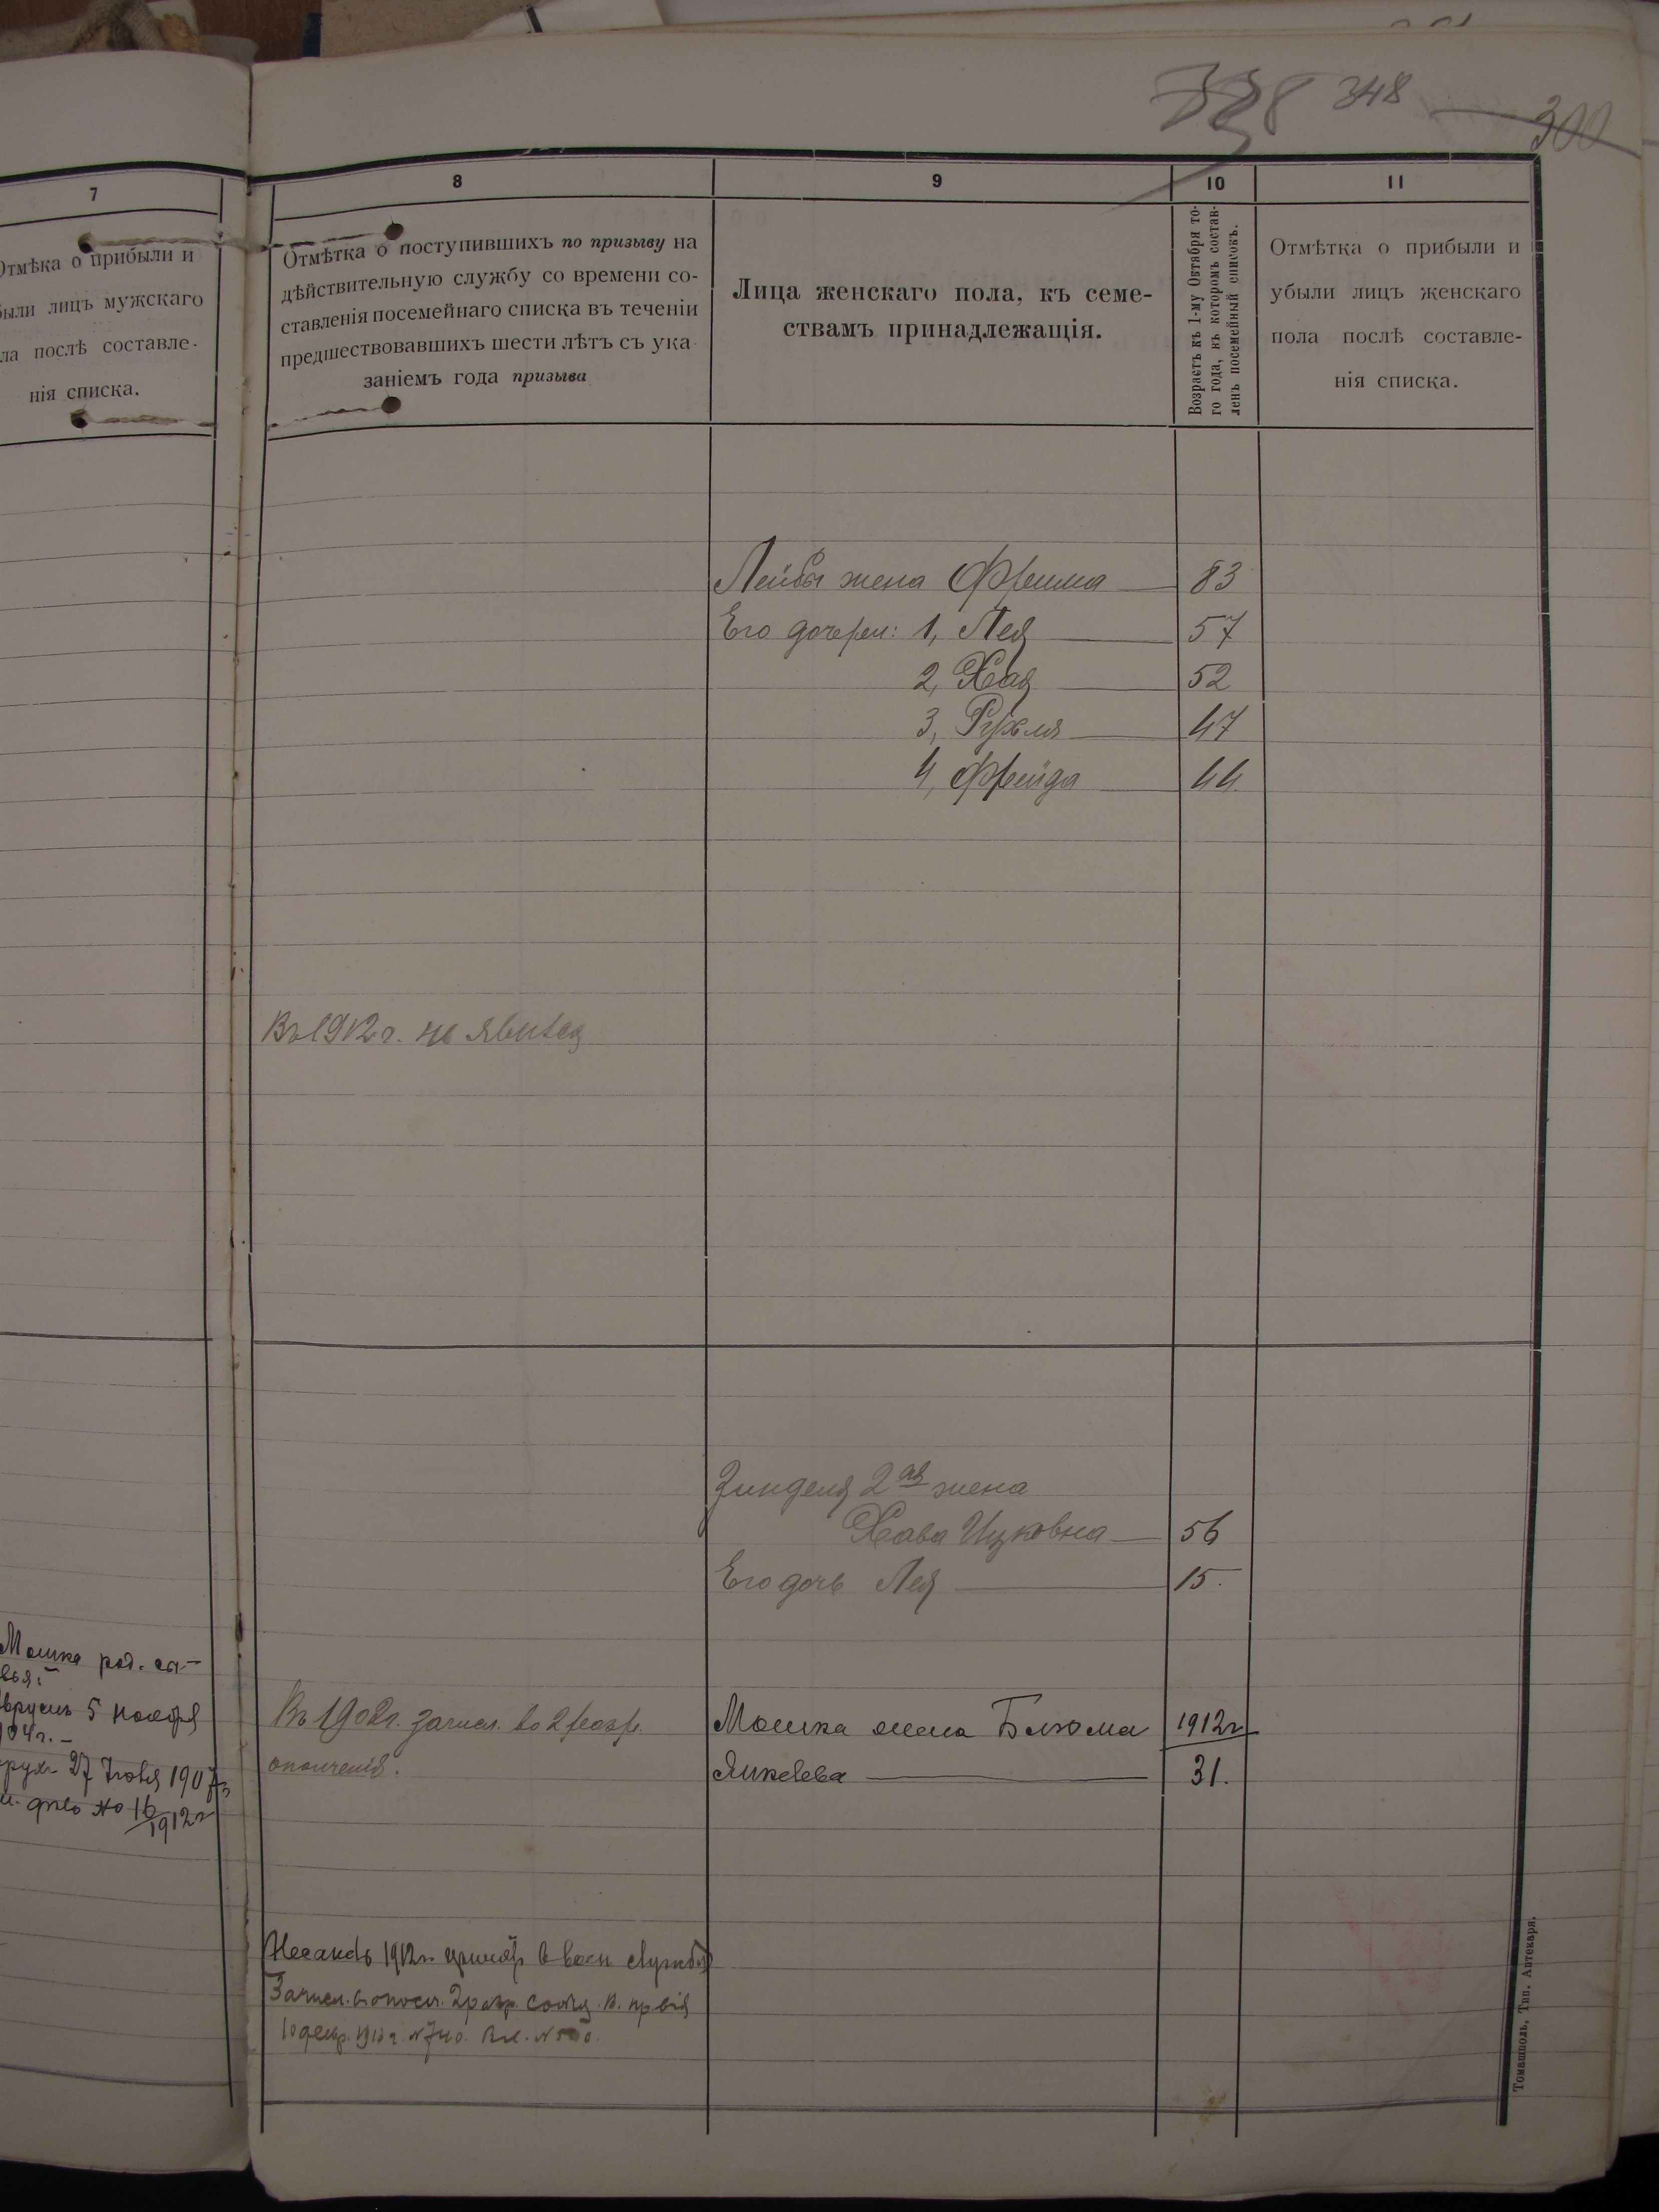 348
300
7
8
9
10
11
Отмѣка о прибыли и
были лицъ мужскаго
ла послѣ составле-
нія списка.
Отмѣтка о поступившихъ по призыву на
дѣйствительную службу со времени со-
ставленія посемейнаго списка въ теченіи
предшествовавшихъ шести лѣтъ съ ука
заніемъ года призыва
Лица женскаго пола, къ семе-
ствамъ принадлежащія.
Возрастъ къ 1-му Октября то-
го года, къ которомъ состав-
ленъ посемейный списокъ.
Отмѣтка о прибыли и
убыли лицъ женскаго
пола послѣ составле-
нія списка.
Лейбы жена Фрейма 83
Его дочери: 1, Лея 57
2, Хая 52
3, Рухля 47
4, Фрейда 44
Въ 1912 г. не явился
Зинделя 2ая жена
Хава Ицковна 56
Его дочь Лея 15.
Мошка род. сы-
вья:
5 ноября
27 Іюня 1907
дѣло № 16
1912 г
Въ 1902 г. зачисл. во 2 разр.
ополченія.
Мошка жена Блюма 1912 г
Янкелева 31.
1912 г.
Зачисл.
Томашполь, Тип. Аптекаря.